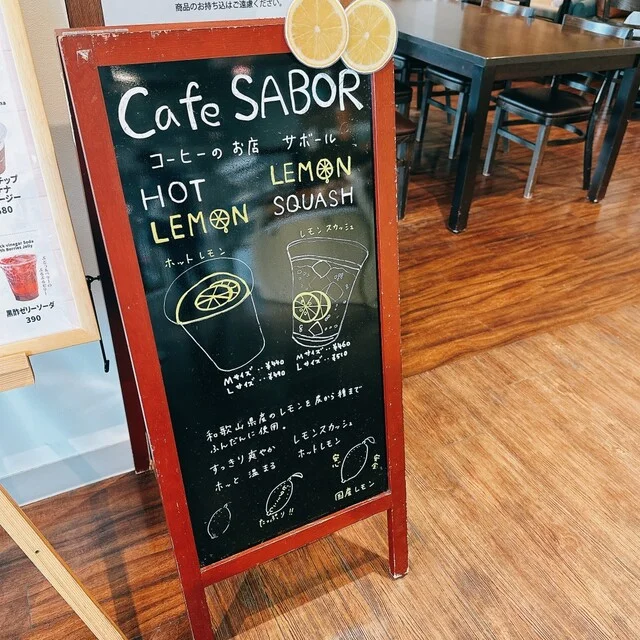 商品のお持ち込はご遠慮ください。
Cafe SABOR
コーヒーのお店 サボール
HOT
LEMON
LEMON
SQUASH
ホットレモン
レモンスカッシュ
Mサイズ‥¥440
Lサイズ‥¥490
Mサイズ‥¥460
Lサイズ‥¥510
和歌山県産のレモンを皮から種まで
ふんだんに使用。
すっきり爽やか レモンスカッシュ
ホッと 温まる ホットレモン
安 安
たっぷり!!
国産レモン
チップ
黒酢ゼリーソーダ
390